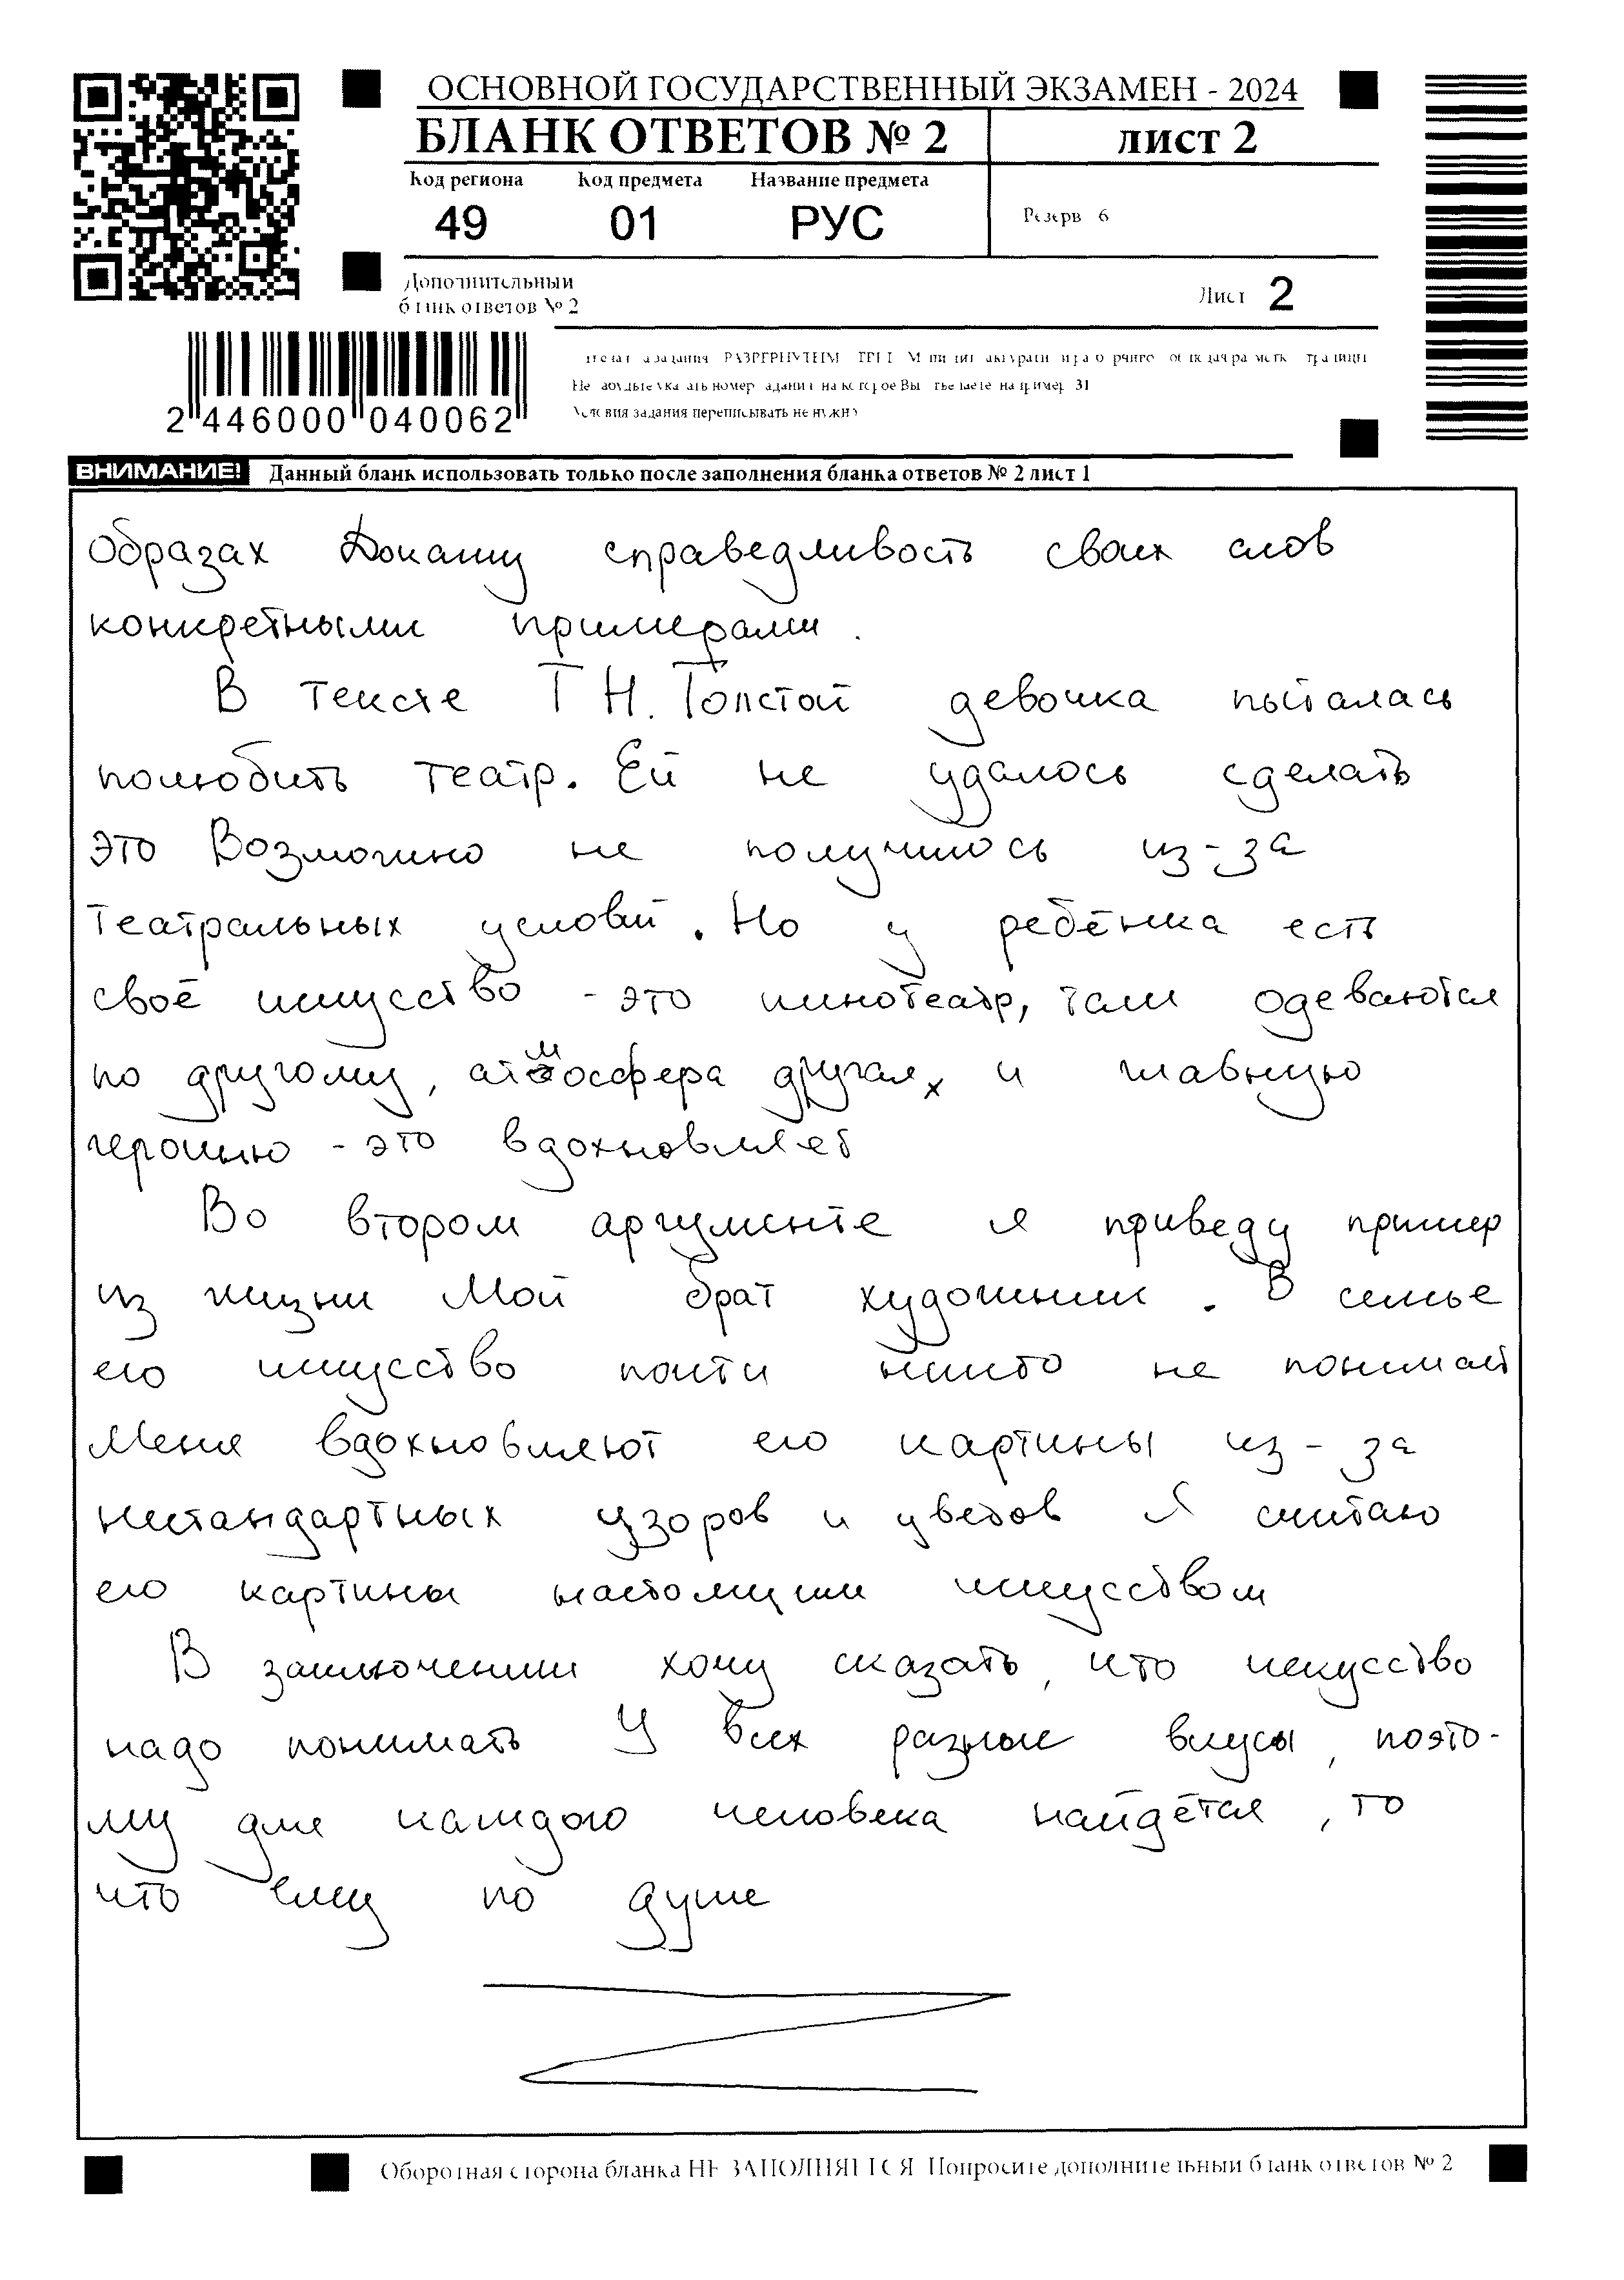 ОСНОВНОЙ ГОСУДАРСТВЕННЫЙ ЭКЗАМЕН - 2024
БЛАНК ОТВЕТОВ № 2 лист 2
Код региона Код предмета Название предмета
49 01 РУС Резерв 6
Дополнительный
бланк ответов № 2 Лист 2
2 446000 040062
Условия задания переписывать не нужно
ВНИМАНИЕ! Данный бланк использовать только после заполнения бланка ответов № 2 лист 1
образах Докажу справедливость своих слов
конкретными примерами.
В тексте Т Н. Толстой девочка пыталась
полюбить театр. Ей не удалось сделать
это Возможно не получилось из-за
театральных условий. Но у ребёнка есть
своё искусство - это кинотеатр, там одеваются
по другому, атмосфера другая, и главную
героиню - это вдохновляет
Во втором аргументе я приведу пример
из жизни Мой брат художник. В семье
его искусство почти никто не понимает
Меня вдохновляют его картины из-за
нестандартных узоров и цветов Я считаю
его картины настоящим искусством
В заключении хочу сказать, что искусство
надо понимать У всех разные вкусы, поэто-
му для каждого человека найдётся, то
что ему по душе
Оборотная сторона бланка НЕ ЗАПОЛНЯЕТСЯ Попросите дополнительный бланк ответов № 2